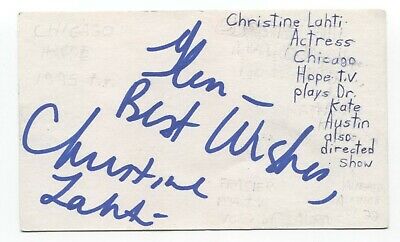 Glen -
Best Wishes,
Christine
Lahti
Christine Lahti.
Actress
Chicago
Hope t.v.
plays Dr.
Kate
Austin
also-
directed
show
CHICAGO
HOPE
1995 t.v.